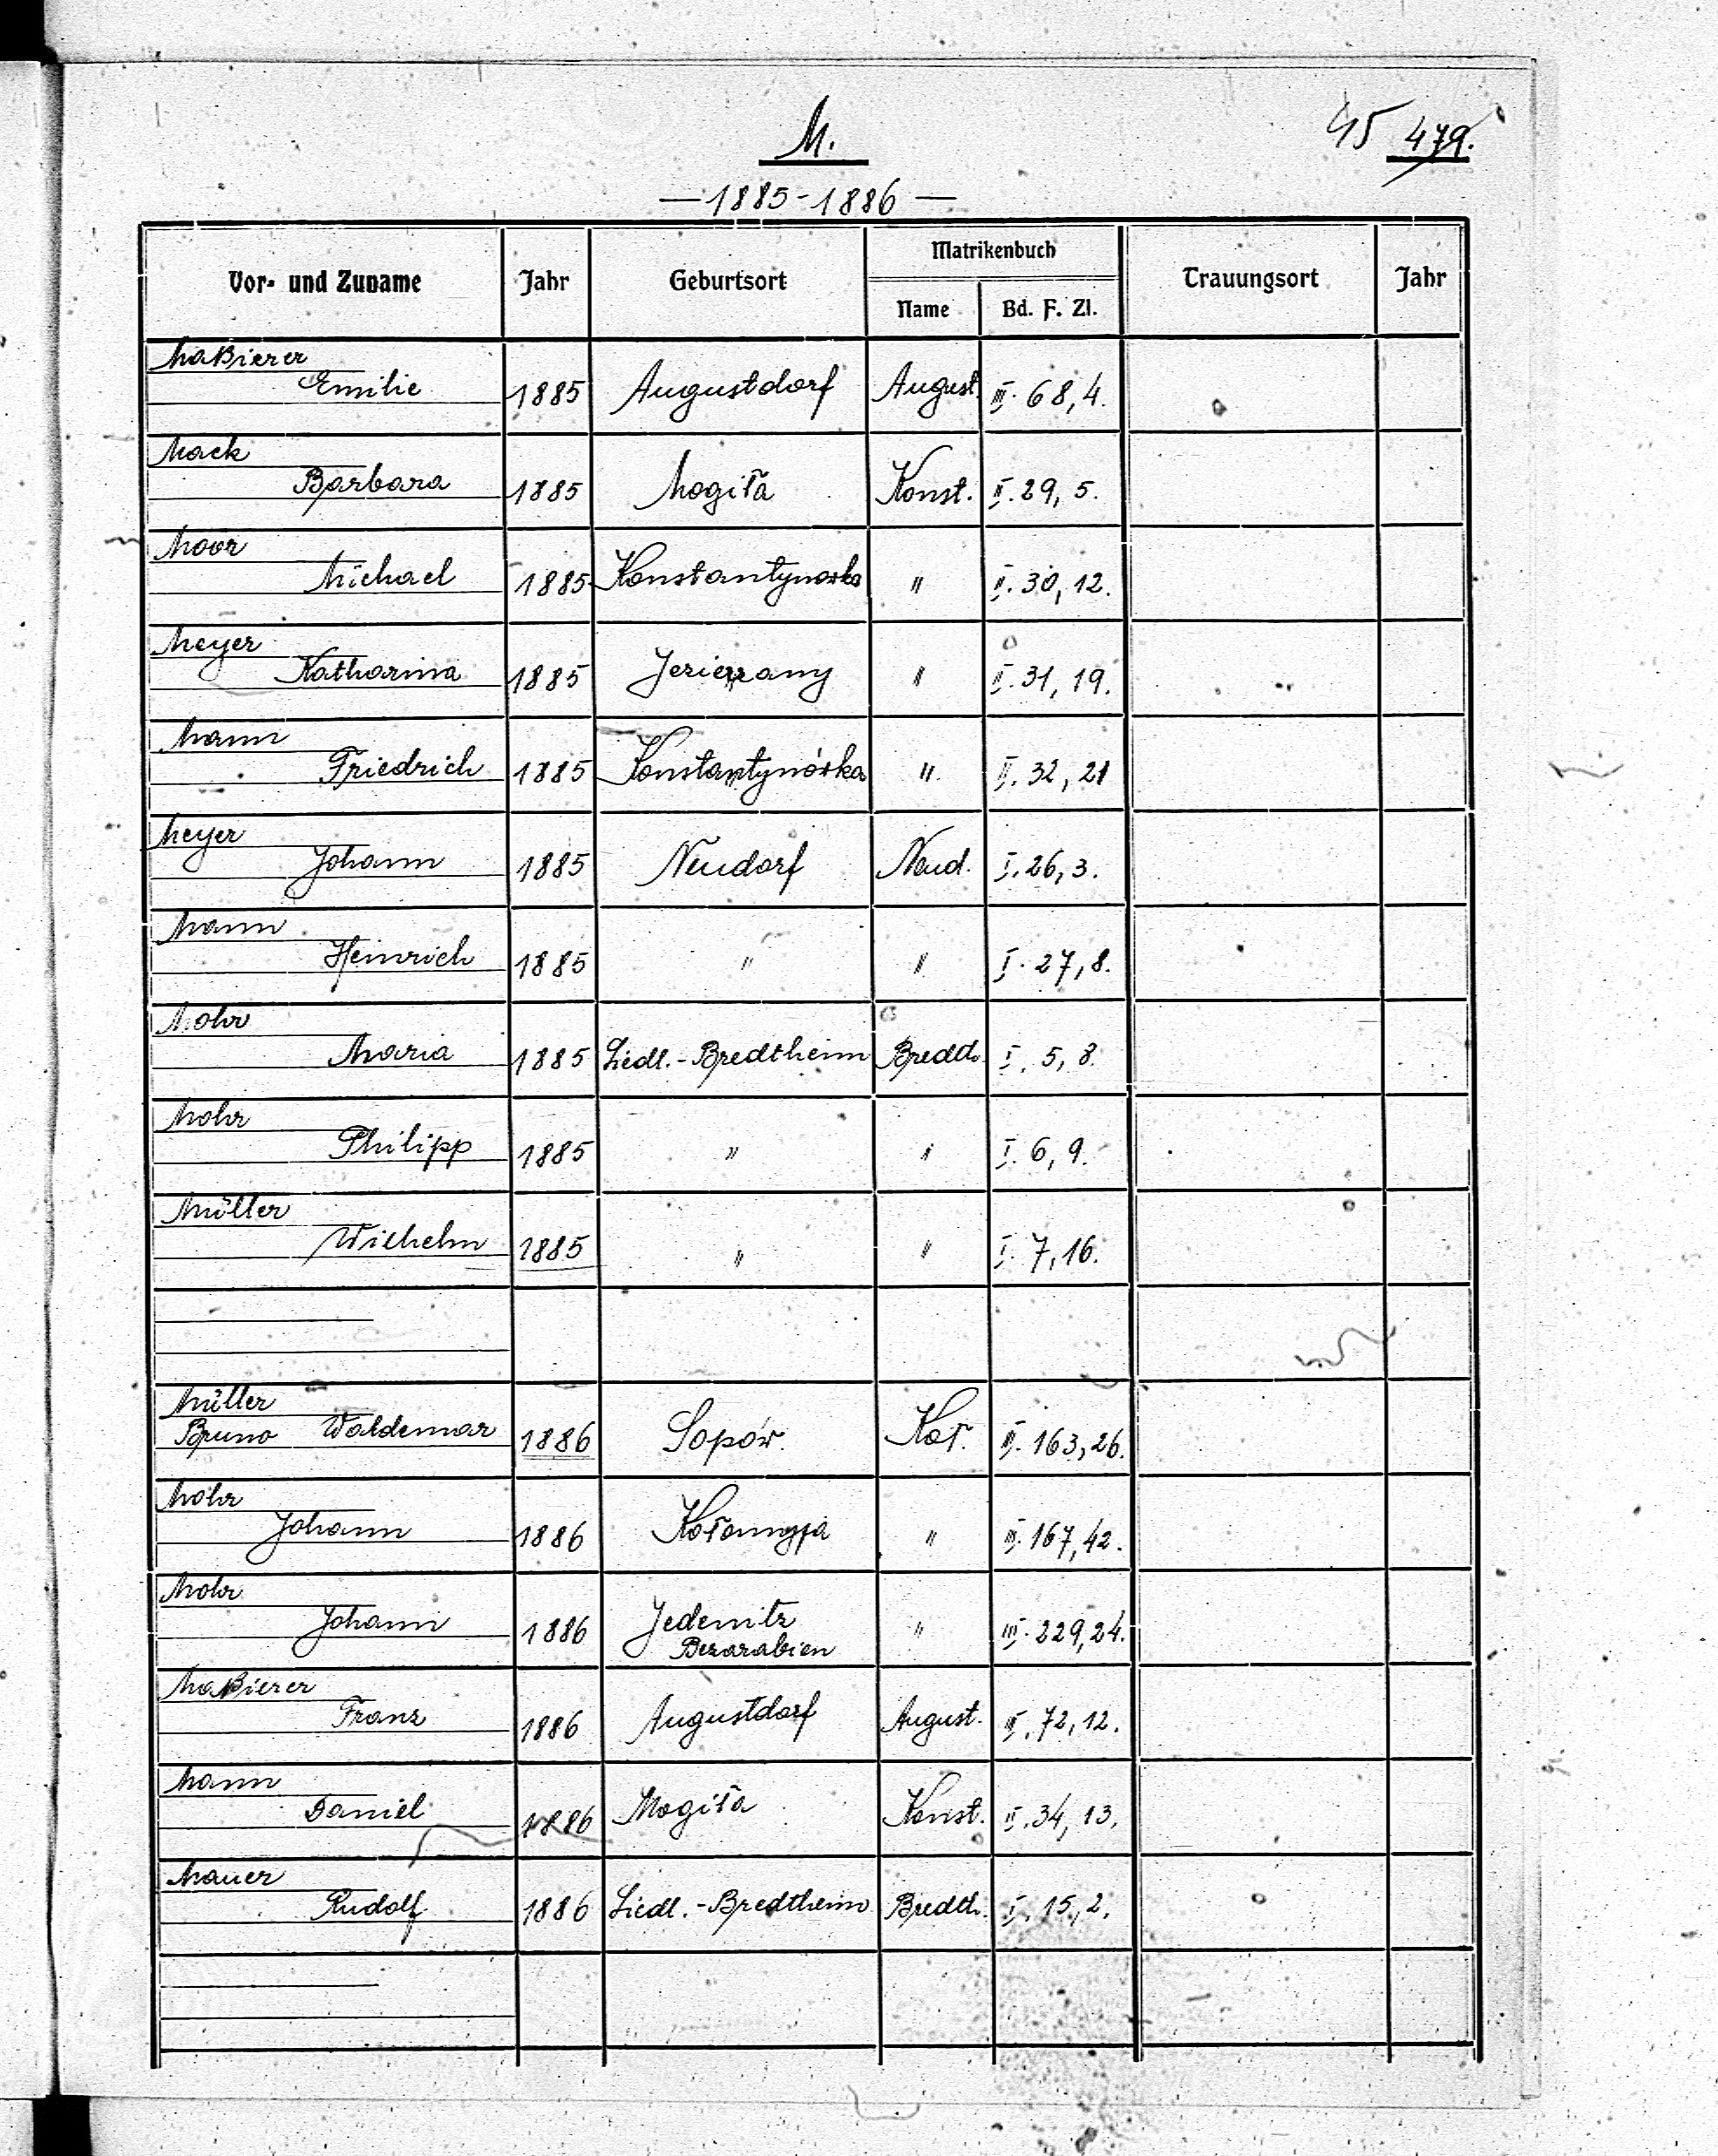 M.
45 479.
— 1885-1886 —
Vor- und Zuname Jahr Geburtsort Matrikenbuch Trauungsort Jahr
Name Bd. F. Zl.
Maßierer
Emilie 1885 Augustdorf August. III. 68, 4.
Mack
Barbara 1885 Mogiła Konst. II. 29, 5.
Moor
Michael 1885 Konstantynówka " II. 30, 12.
Meyer
Katharina 1885 Jezierzany " II. 31, 19.
Mann
Friedrich 1885 Konstantynówka " II. 32, 21
Meyer
Johann 1885 Neudorf Neud. I. 26, 3.
Mann
Heinrich 1885 " " I. 27, 8.
Mohr
Maria 1885 Siedl.-Bredtheim Bredth. I. 5, 8.
Mohr
Philipp 1885 " " I. 6, 9.
Müller
Wilhelm 1885 " " I. 7, 16.
Müller
Bruno Waldemar 1886 Sopów Koł. III. 163, 26.
Mohr
Johann 1886 Kołomyja " III. 167, 42.
Mohr
Johann 1886 Jedenitz " III. 229, 24.
Bezarabien
Maßierer
Franz 1886 Augustdorf August. III. 72, 12.
Mann
Daniel 1886 Mogiła Konst. II. 34, 13.
Mauer
Rudolf 1886 Siedl.-Bredtheim Bredth. I. 15, 2.